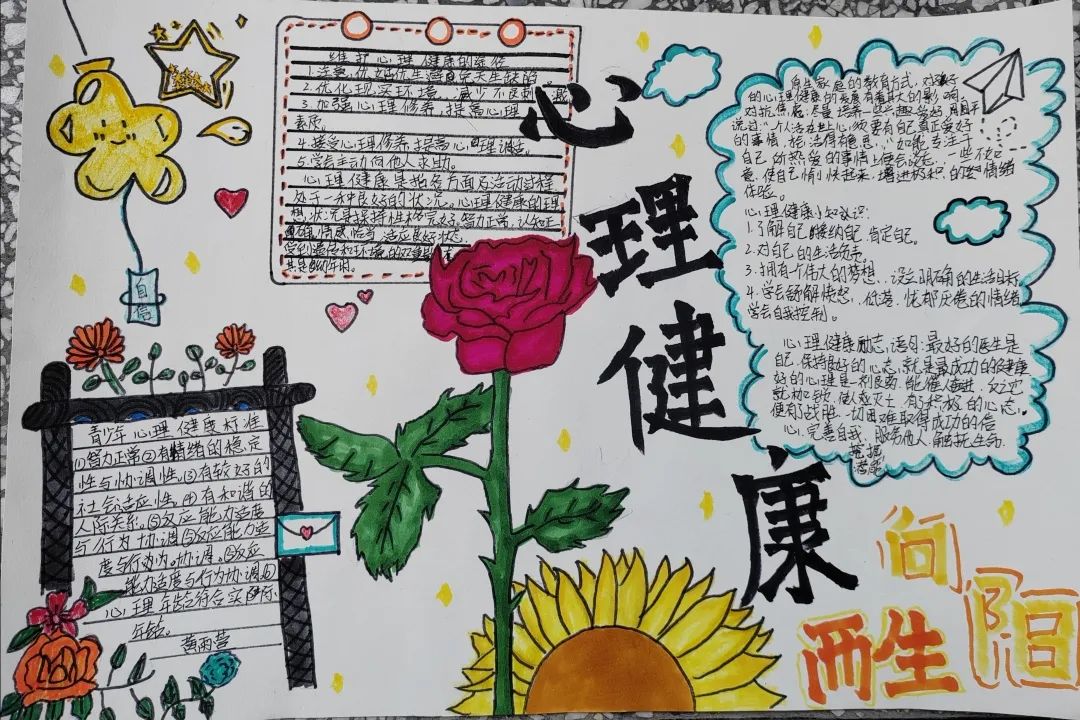 心理健康
维护心理健康的途径
1.注意优婚优生避免先天生缺陷
2.优化现实环境,减少不良刺激
3.加强心理修养,提高心理
素质。
4.接受心理修养,提高心理调适。
5.学会主动向他人求助。
心理健康是指各方面及活动过程
处于一种良好的状况。心理健康的理
想状况是保持性格完好、智力正常、认知正
确、情感恰当、适应良好状态。
受到遗传和环境的双重
其是幼年时
自信
青少年心理健康标准
(1)智力正常②有情绪的稳定
性与协调性。(3)有较好的
社会适应性。(4)有和谐的
人际关系。⑤反应能力适度
与行为协调⑤反应能力适
度与行为协调。⑤反应
能力适度与行为协调⑥
心理年龄符合实际
年龄。
黄雨营
原生家庭的教育方式,对孩子
的心理健康的发展有着具大的影响。
对抗焦虑,尽量培养一些兴趣爱好,周国平
说过“个人活在世上,必须要有自己真正爱好
的事情,才会活得有意思。”如能专注于
自己的热爱的事情上便会忘记一些不如
意,使自己愉快起来,增进积积的的情绪
体验。
心理健康小知识:
1.了解自己,接纳自己,肯定自己。
2.对自己的生活负责
3.拥有一个伟大的梦想,设立明确的生活目标
4.学会缓解愤怒、低落、忧郁厌倦的情绪
学会自我控制。
心理健康励志语句:最好的医生是
自己,保持良好的心态,就是最成功的保健康
好的心理是一剂良药,能催人奋进,反之也
就枷锁,使人颓丧。有了积极的心态,
便有战胜一切困难取得成功的信
心,完善自我,服务他人,解托生命
挖掘
潜能
向
阳
而生